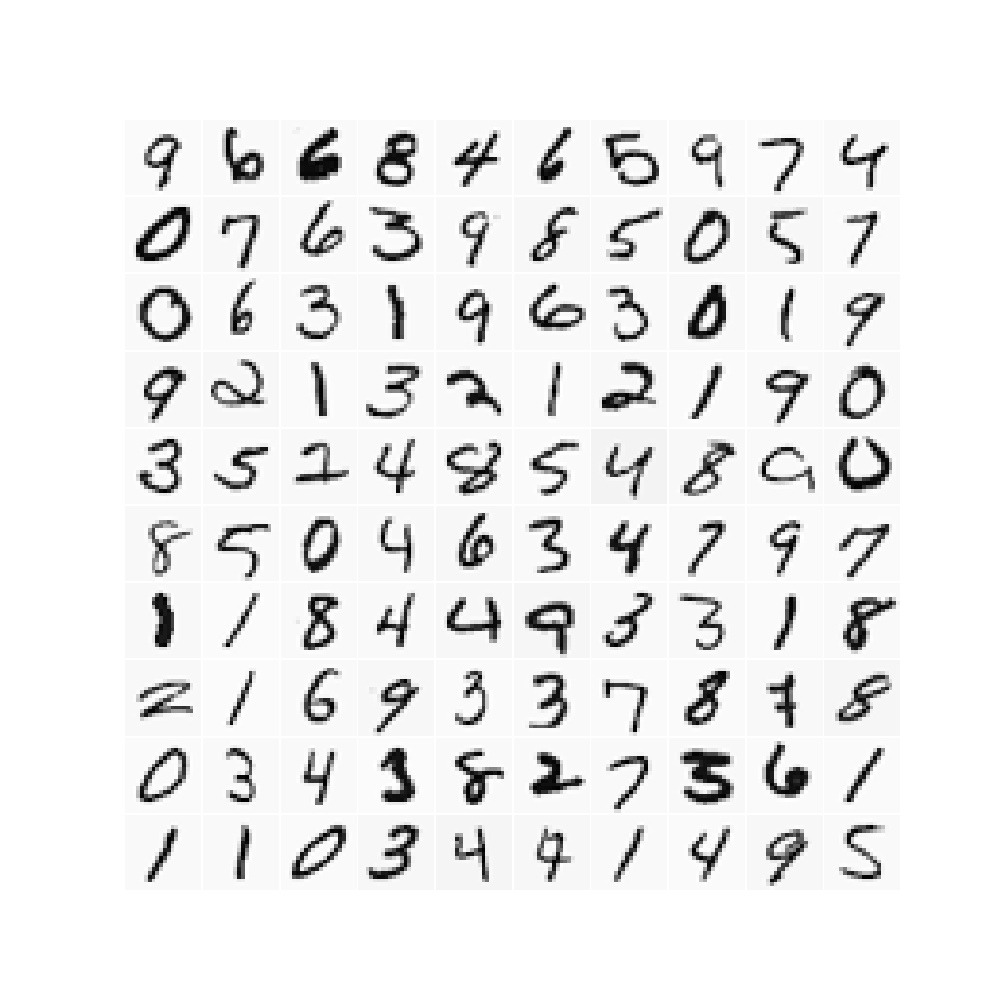 9 6 6 8 4 6 5 9 7 4
0 7 6 3 9 8 5 0 5 7
0 6 3 1 9 6 3 0 1 9
9 2 1 3 2 1 2 1 9 0
3 5 2 4 8 5 4 8 9 0
8 5 0 4 6 3 4 7 9 7
1 1 8 4 4 9 3 3 1 8
2 1 6 9 3 3 7 8 7 8
0 3 4 3 8 2 7 5 6 1
1 1 0 3 4 4 1 4 9 5